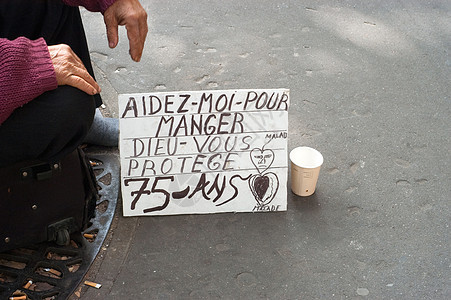 AIDEZ-MOI-POUR
MANGER
DIEU-VOUS
MALAD
PROTÈGE
75-ANS
MALADE